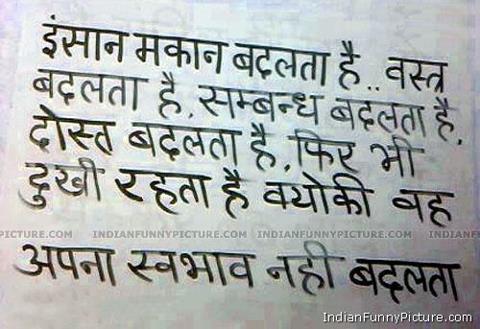 इंसान मकान बदलता है.. वस्त्र
बदलता है, सम्बन्ध बदलता है,
दोस्त बदलता है, फिर भी
दुखी रहता है क्योकी वह
PICTURE.COM INDIANFUNNYPICTURE.COM INDIANFUNNYPICTURE.COM INDIANFUNN
अपना स्वभाव नही बदलता
IndianFunnyPicture.com